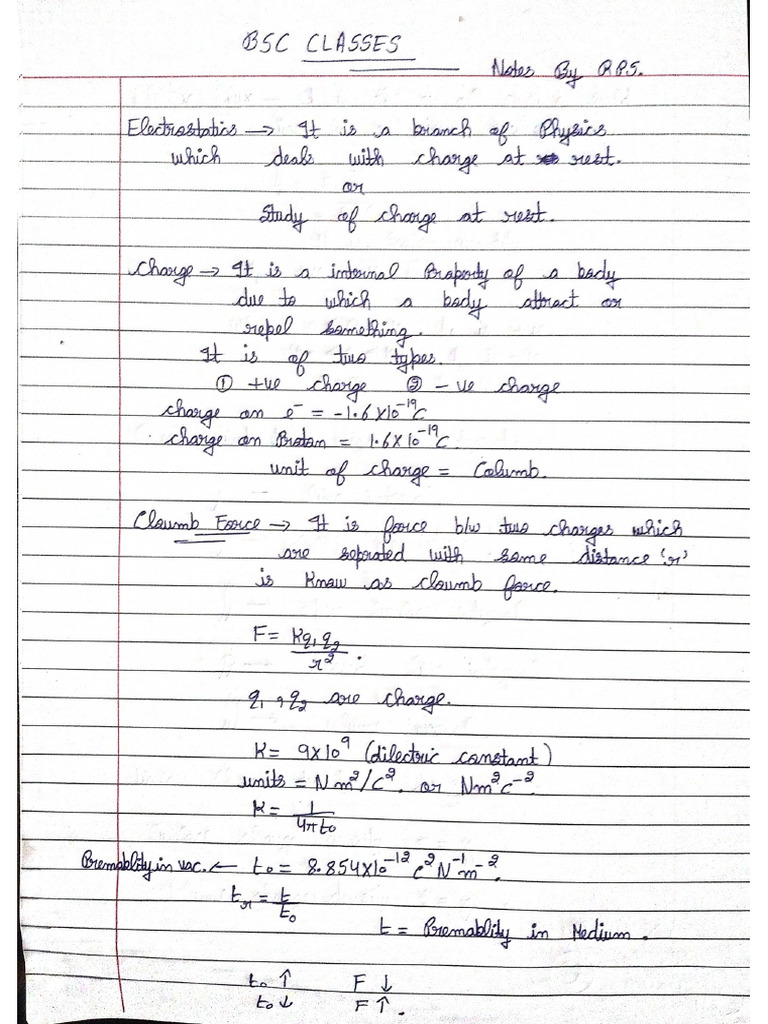 BSC CLASSES
Notes By RPS.
Electrostatics → It is a branch of Physics
which deals with charge at rest.
or
Study of charge at rest.
Charge → It is a internal Property of a body
due to which a body attract or
repel something.
It is of two types.
① +ve charge ② -ve charge
charge on e⁻ = -1.6×10⁻¹⁹C
charge on Proton = 1.6×10⁻¹⁹C.
unit of charge = Columb.
Cloumb Force → It is force b/w two charges which
are seprated with some distance 'r'
is Know as cloumb force.
F = Kq₁q₂/r².
q₁, q₂ are charge.
K = 9×10⁹ (dilectric constant)
units = Nm²/C². or Nm²C⁻²
K = 1/4πt₀
Premablity in vac. ← t₀ = 8.854×10⁻¹² C²N⁻¹m⁻².
tᵣ = t/t₀
t = Premablity in Medium.
t₀ ↑ F ↓
t₀ ↓ F ↑.